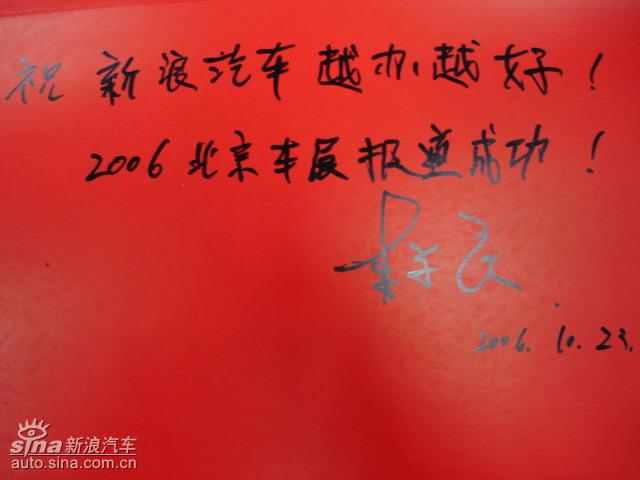 祝新浪汽车越办越好！
2006北京车展报道成功！
2006.10.23.
sina新浪汽车
auto.sina.com.cn